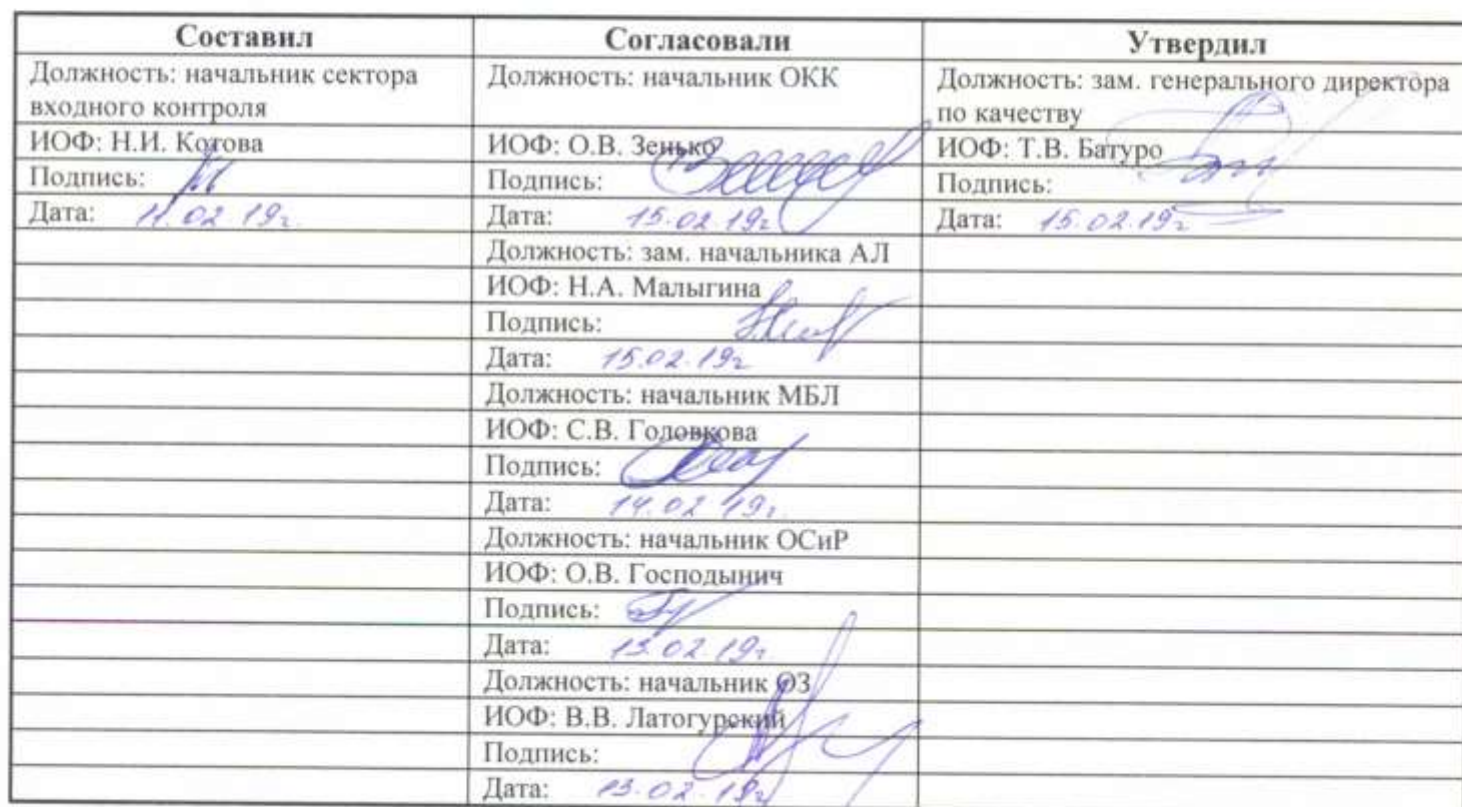 Составил Согласовали Утвердил
Должность: начальник сектора Должность: начальник ОКК Должность: зам. генерального директора
входного контроля по качеству
ИОФ: Н.И. Котова ИОФ: О.В. Зенько ИОФ: Т.В. Батуро
Подпись: Подпись: Подпись:
Дата: 11.02.19г. Дата: 15.02.19г Дата: 15.02.19г
Должность: зам. начальника АЛ
ИОФ: Н.А. Малыгина
Подпись:
Дата: 15.02.19г
Должность: начальник МБЛ
ИОФ: С.В. Головкова
Подпись:
Дата: 14.02.19г.
Должность: начальник ОСиР
ИОФ: О.В. Господынич
Подпись:
Дата: 13.02.19г
Должность: начальник ОЗ
ИОФ: В.В. Латогурский
Подпись:
Дата: 13.02.19г